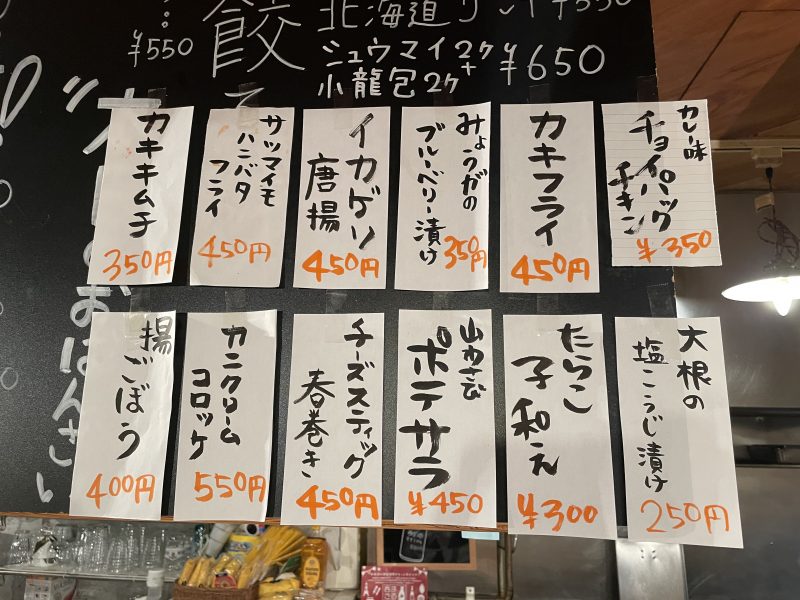 ¥550
餃
北海道
シュウマイ2ケ
+
小龍包2ケ
¥650
カレー味
チョイパック
チキン
¥350
カキフライ
450円
みょうがの
ブルーベリー漬け
350円
イカゲソ
唐揚
450円
サツマイモ
ハニバタ
フライ
450円
カキキムチ
350円
大根の
塩こうじ漬け
250円
たらこ
子和え
¥300
山わさび
ポテサラ
¥450
チーズスティック
春巻き
450円
カニクリーム
コロッケ
550円
揚
ごぼう
400円
のおばんさい